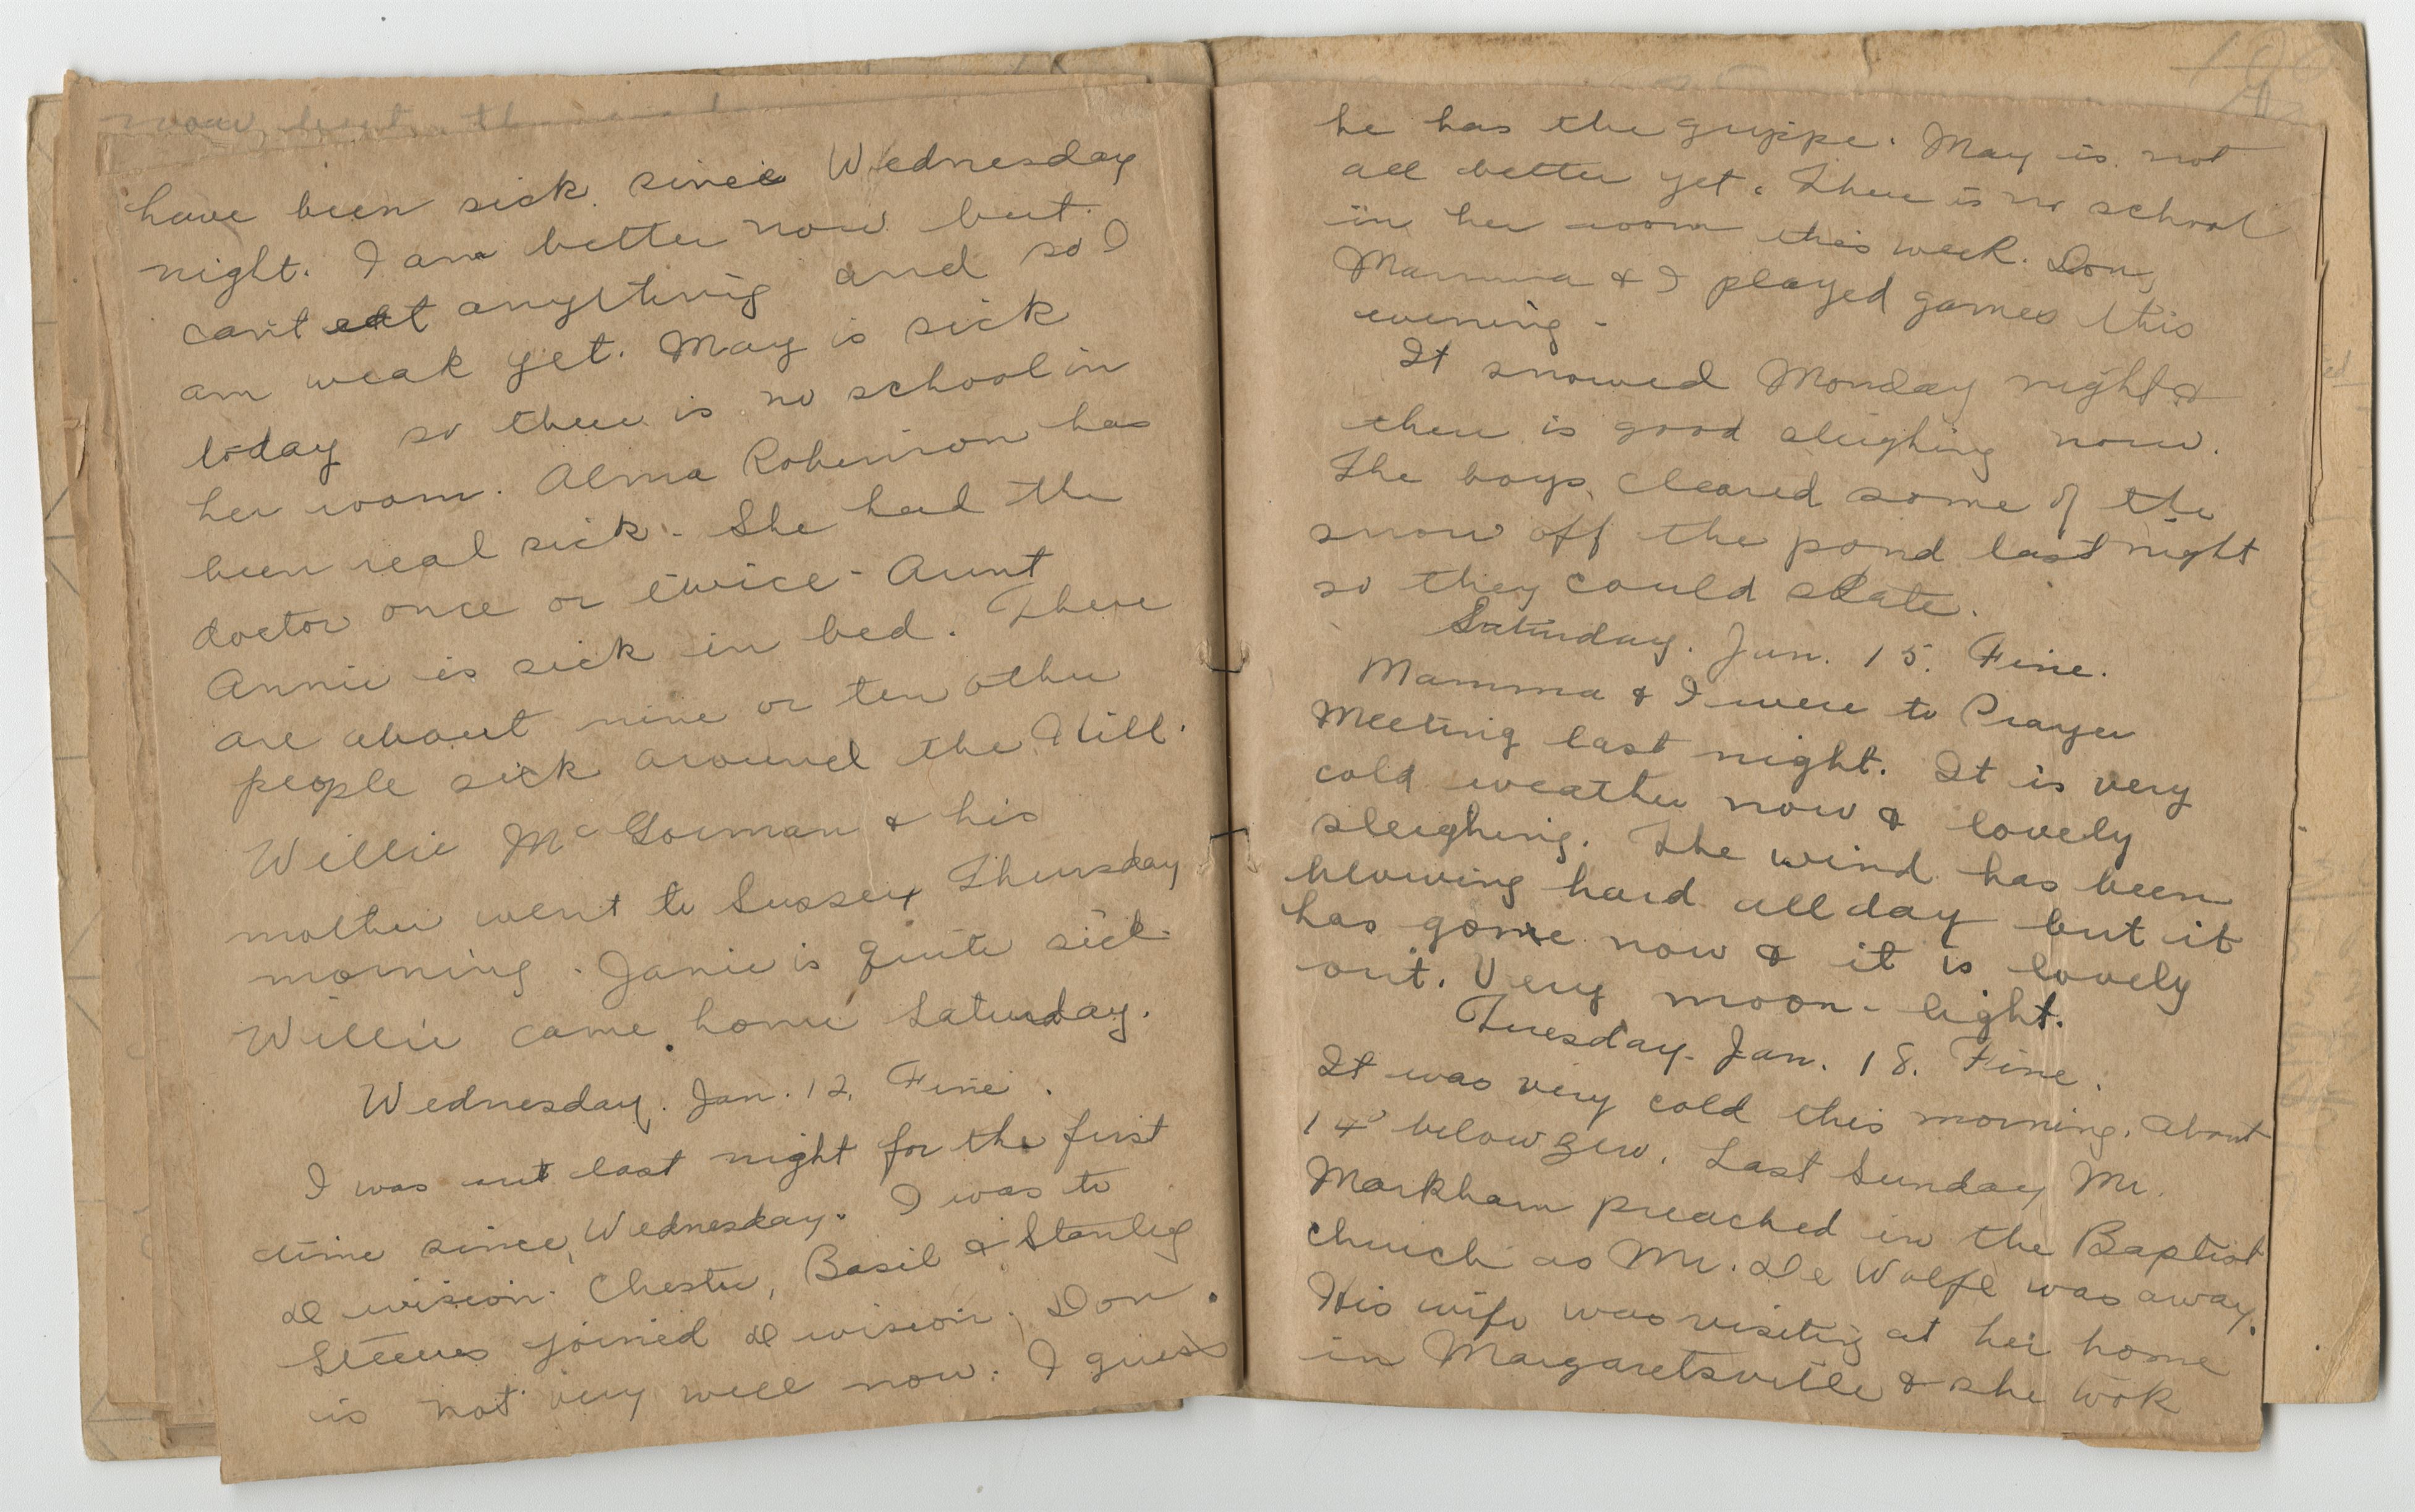 have been sick since Wednesday
night. I am better now but
can't eat anything and so I
am weak yet. May is sick
today so there is no school in
her room. Alma Robinson has
been real sick. She had the
doctor once or twice - Aunt
Annie is sick in bed. There
are about nine or ten other
people sick around the Hill.
Willie McGorman & his
mother went to Sussex Thursday
morning. Janie is quite sick.
Willie came home Saturday.
Wednesday. Jan. 12. Fine.
I was out last night for the first
time since Wednesday. I was to
Division. Chester, Basil & Stanley
Steeves joined Division. Don
is not very well now. I guess
he has the grippe. May is not
all better yet. There is no school
in her room this week. Don,
Mamma & I played games this
evening -
It snowed Monday night &
there is good sleighing now.
The boys cleared some of the
snow off the pond last night
so they could skate.
Saturday. Jan. 15. Fine.
Mamma & I were to Prayer
Meeting last night. It is very
cold weather now & lovely
sleighing. The wind has been
blowing hard all day but it
has gone now & it is lovely
out. Very moon-light.
Tuesday. Jan. 18. Fine.
It was very cold this morning. About
14° below zero. Last Sunday Mr.
Markham preached in the Baptist
church as Mr. De Wolfe was away.
His wife was visiting at her home
in Margaretsville & she took